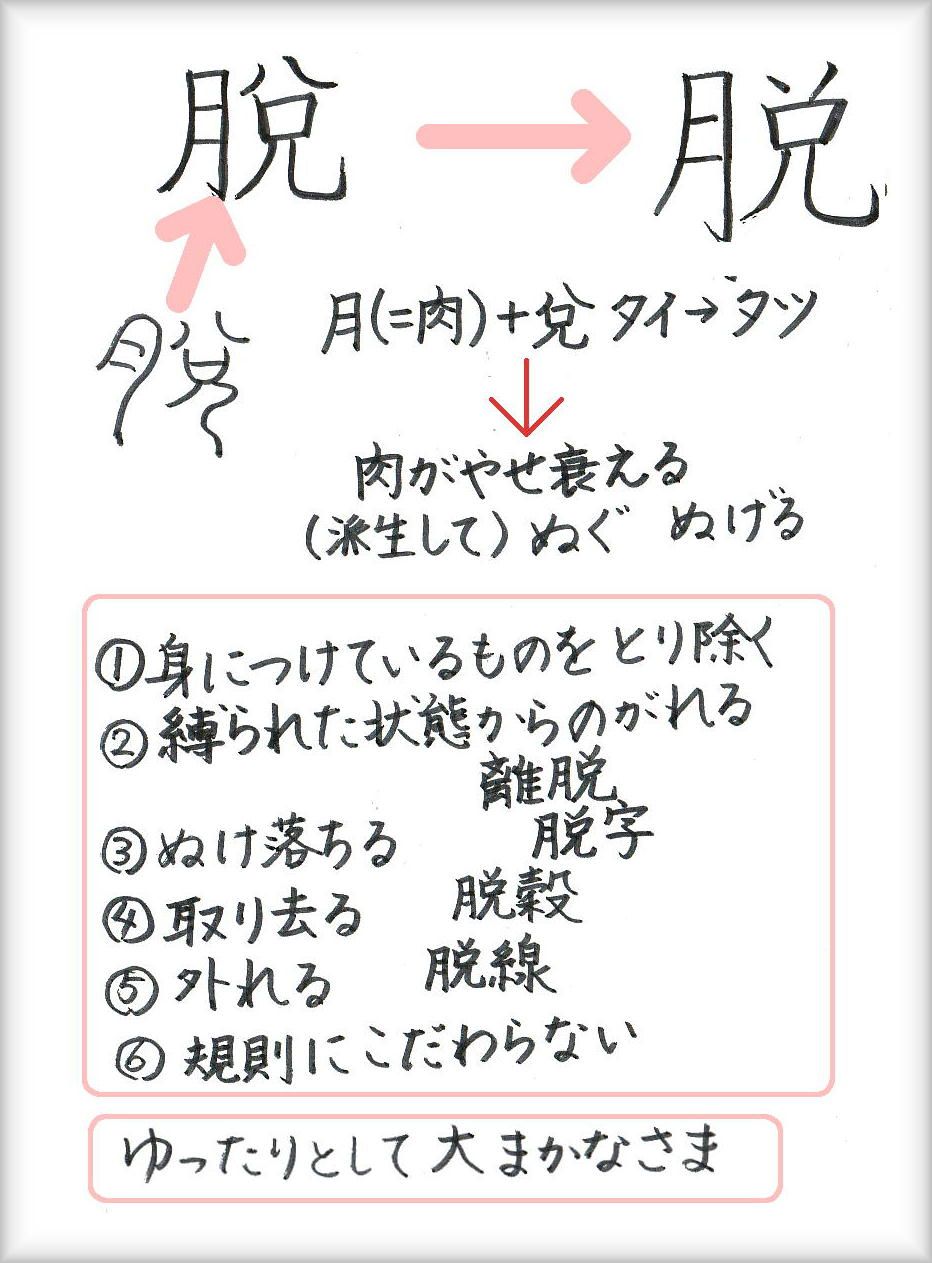 脫 脱
脫
月(=肉)+兌 タイ→ダツ
肉がやせ衰える
(派生して) ぬぐ ぬげる
①身につけているものをとり除く
②縛られた状態からのがれる
離脱
脱字
③ぬけ落ちる
脱穀
④取り去る
脱線
⑤外れる
⑥規則にこだわらない
ゆったりとして大まかなさま